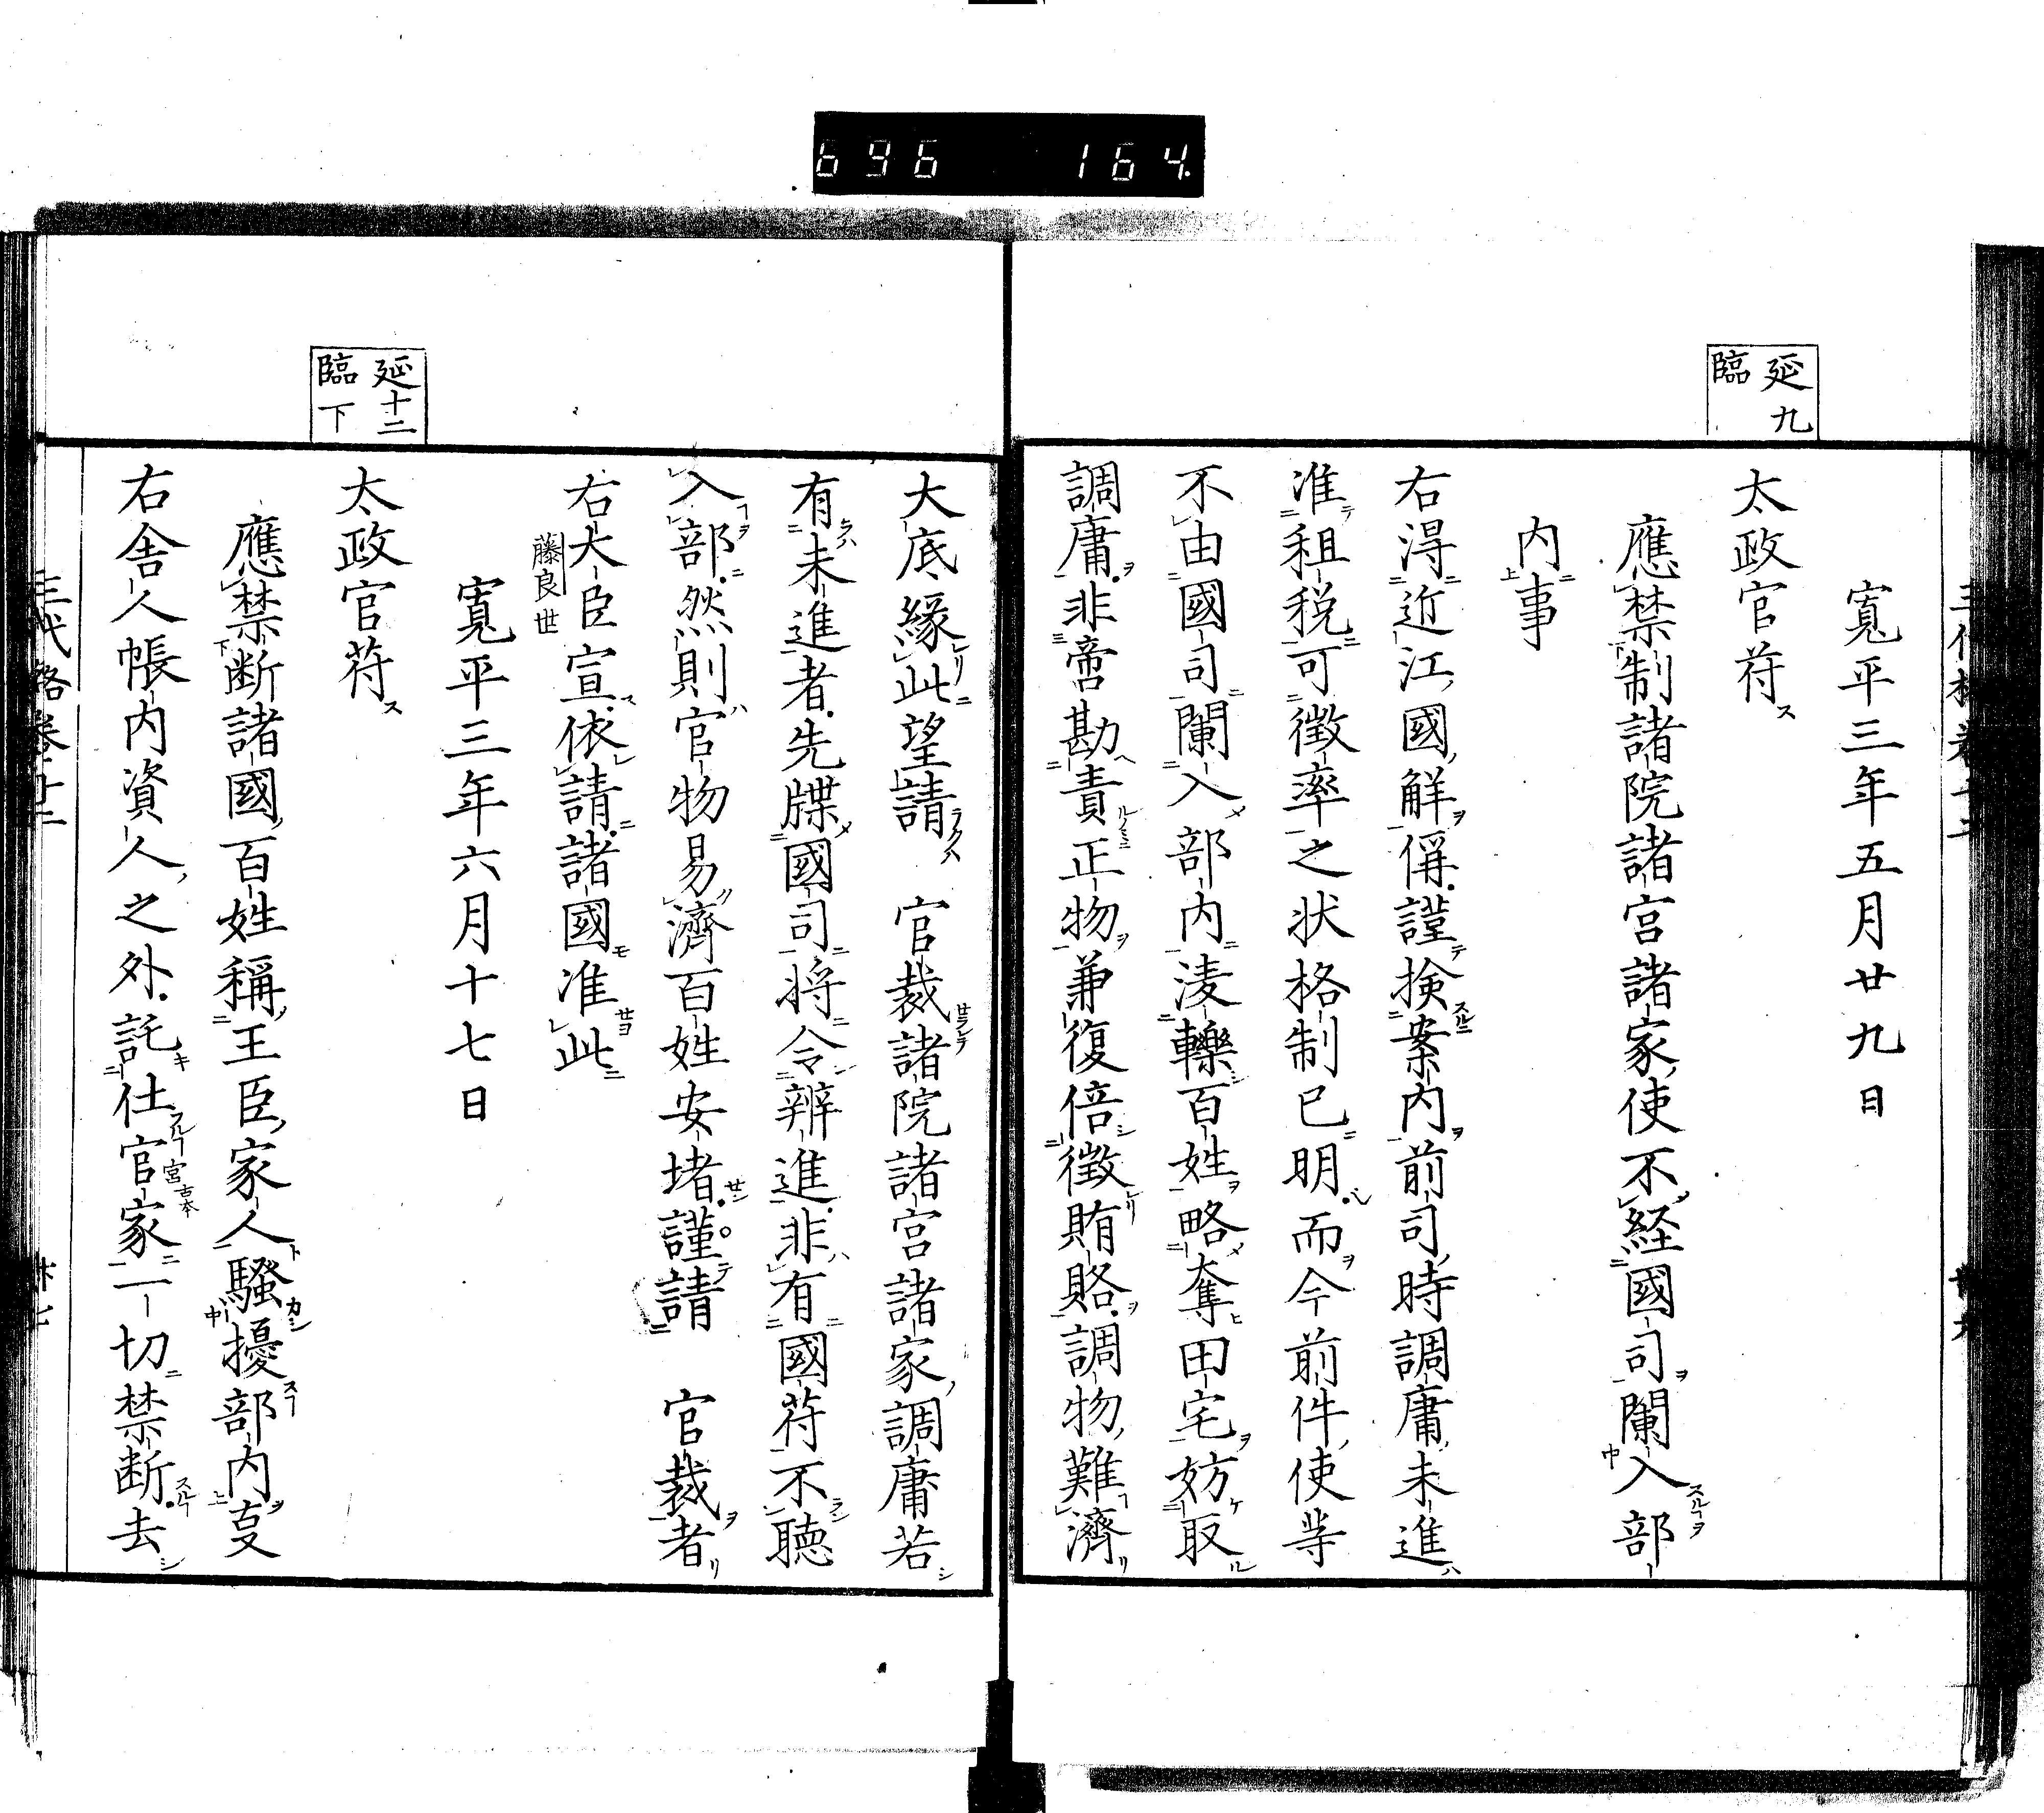 696 164
延九
臨
寛平三年五月廿九日
太政官苻ス
應禁制諸院諸宮諸家使不経國司闌入部
内事
右淂近江國解偁謹検案内前司時調庸未進
准租税可徴率之状格制已明而今前件使等
不由國司闌入部内淩轢百姓略奪田宅妨取
調庸非啻勘責正物兼復倍徴賄賂調物難濟
大底縁此望請　官裁諸院諸宮諸家調庸若
有未進者先牒國司将令辨進非有國苻不聴
入部然則官物易濟百姓安堵謹請　官裁者
右大臣宣依請諸國准此
藤良世
寛平三年六月十七日
延十二
臨下
太政官苻ス
應禁断諸國百姓稱王臣家人騷擾部内叓
右舎人帳内資人之外託仕官家一切禁断去
宮古本